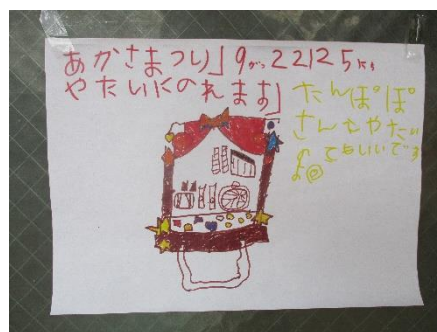 あかさまつり」9がつ22125にち
やたいにのれます」
たんぽぽ
さんもやたい
てもいいです
よ